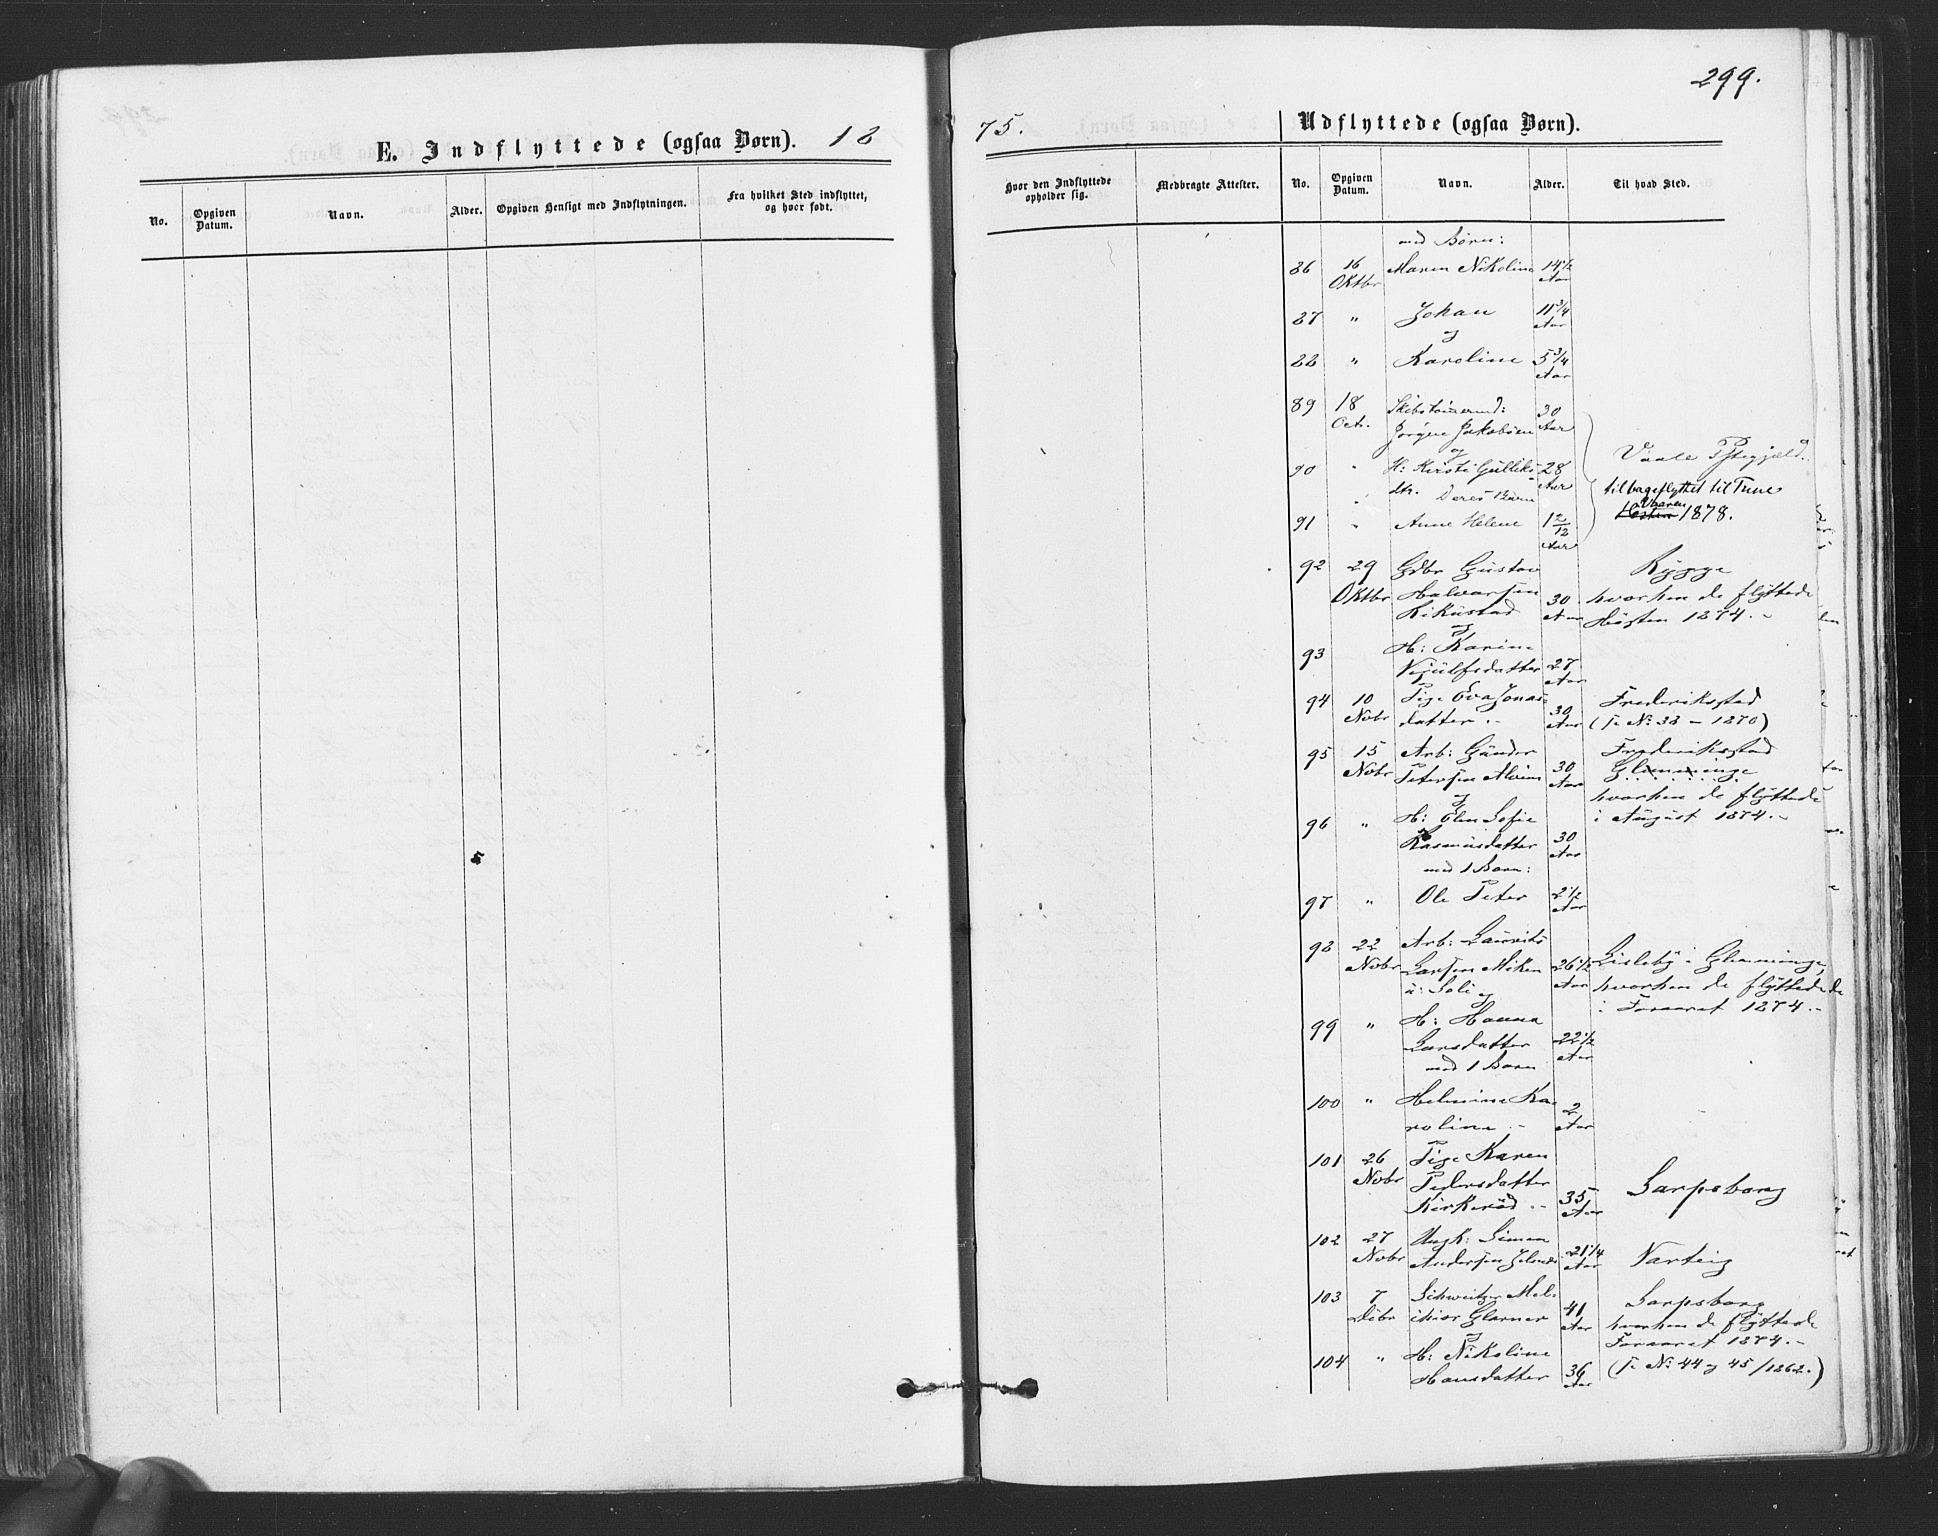 299.
E. Indflyttede (ogsaa Børn). 18
75.
Udflyttede (ogsaa Børn).
No.
Opgiven Datum.
Navn.
Alder.
Opgiven Hensigt med Indflytningen.
Fra hvilket Sted indflyttet, og hvor født.
Hvor den Indflyttede opholder sig.
Medbragte Attester.
No.
Opgiven Datum.
Navn.
Alder.
Til hvad Sted.
med Børn:
86 16 Maren Nikoline 14 1/2
Oktbr Aar
87 " Johan 11 3/4
og Aar
88 " Karoline 5 3/4
Aar
89 18 30
Octr. Jørgen Jakobsen Aar
og
90 " H: Kirsti Gulliks 28
dtr. Deres Barn Aar
Vaale Pstegjeld.
tilbageflyttet til Tune
Vaaren
Høsten 1878.
91 " Anne Helene 1 2/12
Aar
92 29 Gdbr Gustav Rygge
Oktbr Halvorsen 30 hvorhen de flyttede
Aar Høsten 1874.-
og
93 H: Karine
27
Aar
94 10 Pige Eva Jonas- Frederiksstad
Nobr datter.- 30 (I. No: 38 - 1870)
Aar
95 15 Arb: Gunder Frederiksstad
Nobr Petersen Alvim 30 Glemminge
og Aar hvorhen de flyttede
96 " H: Elen Sofie i August 1874.-
Rasmusdatter 30
med 1 Barn: Aar
97 " Ole Peter 2 1/2
Aar
98 22 Arb: Laurits
Nobr Larsen Moken 26 1/2 Lisleby i Glemminge,
u: Soli og Aar hvorhen de flyttede
i Foraaret 1874.-
99 " H: Hanna
Larsdatter 22 1/2
med 1 Barn Aar
100 " Helmine Ka- 2
roline.- Aar
101 26 Pige Karen
Nobr Pedersdatter Sarpsborg
Kirkerød.- 35
Aar
102 27 Ungk: Simen 21 1/4
Nobr Andersen Aar Varteig
103 7 Schweitzer Mel- 41 Sarpsborg
Debr chior Glarner Aar hvorhen de flyttede
og Foraaret 1874.-
104 " H: Nikoline 36 (I. No: 44 og 45/1862.)
Hansdatter Aar